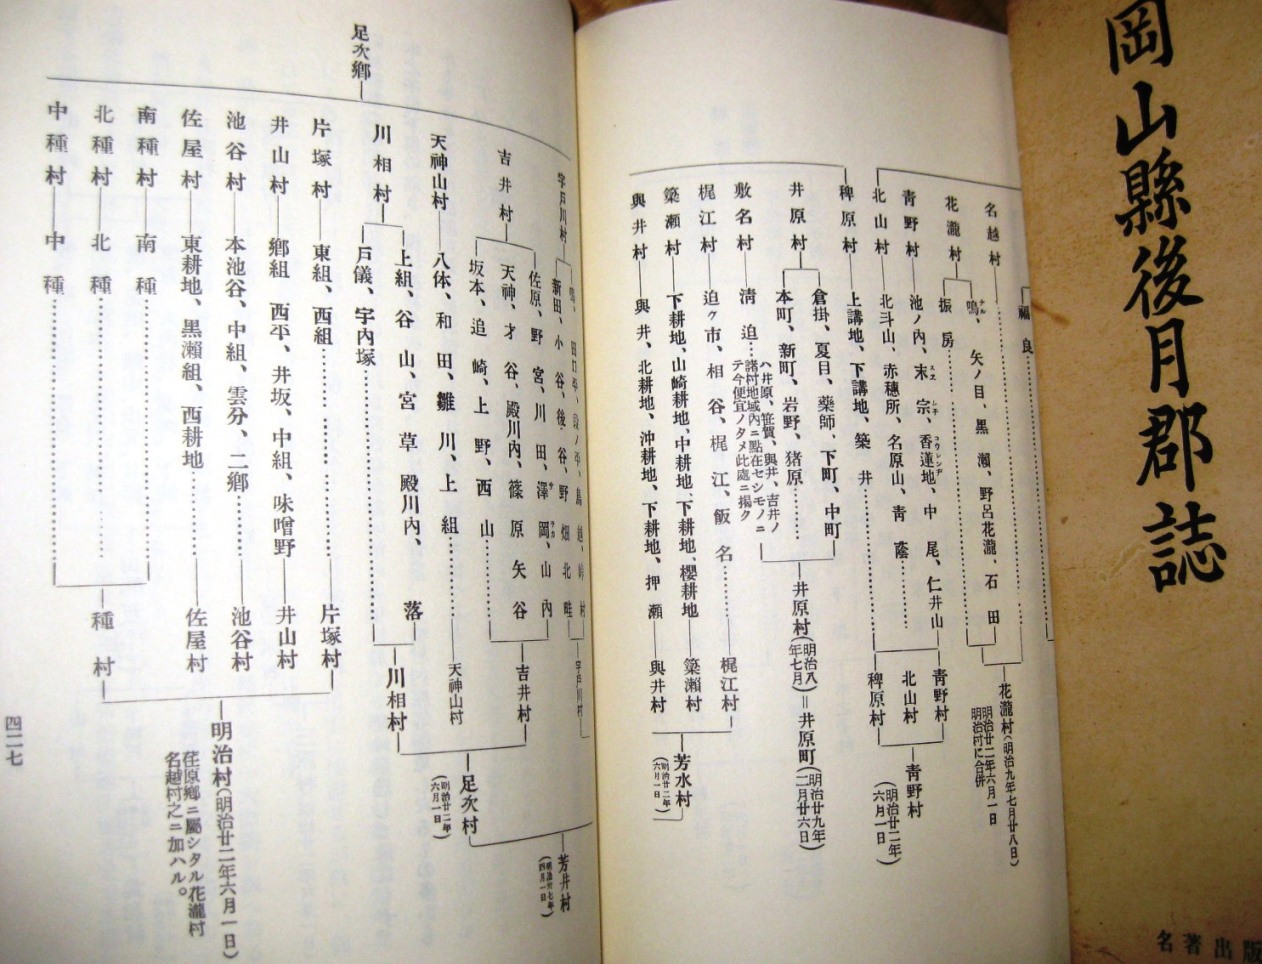 岡山縣後月郡誌
名著出版
福良
名越村
花瀧村
鳴、矢ノ目、黒瀬、野呂花瀧、石田
振房
花瀧村(明治九年七月廿八日)
明治廿二年六月一日
明治村に合併
青野村
池ノ内、末宗、香蓮地、中尾、仁井山
青野村
北山村
北斗山、赤穂所、名原山、青蔭
北山村
稗原村
上講地、下講地、築井
稗原村
青野村
(明治廿二年六月一日)
井原村
倉掛、夏目、藥師、下町、中町
本町、新町、岩野、猪原
井原村(明治八年七月)=井原町(明治廿九年二月廿六日)
敷名村
清迫…ハ井原、笹賀、與井、吉井ノ
諸村地域内ニ點在セシモノニ
テ今便宜ノタメ此處ニ揭ク
梶江村
迫ケ市、相谷、梶江、飯名
梶江村
簗瀬村
下耕地、山崎耕地、中耕地、下耕地、櫻耕地
簗瀬村
與井村
與井、北耕地、沖耕地、下耕地、押瀬
與井村
芳水村
(明治廿二年六月一日)
足次鄉
宇戸川村
新田、小谷、後谷、野畑、北畦
宇戸川村
吉井村
佐原、野宮、川田、澤岡、山内
天神、才谷、殿川内、篠原、矢谷
坂本、追崎、上野、西山
吉井村
天神山村
八体、和田、雛川、上組
天神山村
川相村
上組、谷山、宮草、殿川内、落
戸儀、宇内塚
川相村
足次村
(明治廿二年六月一日)
芳井村
片塚村
東組、西組
片塚村
井山村
鄉組、西平、井坂、中組、味噌野
井山村
池谷村
本池谷、中組、雲分、二鄉
池谷村
佐屋村
東耕地、黒瀬組、西耕地
佐屋村
南種村
南種
北種村
北種
中種村
中種
種村
明治村(明治廿二年六月一日)
荏原鄉ニ屬シタル花瀧村
名越村之ニ加ハル。
四二七